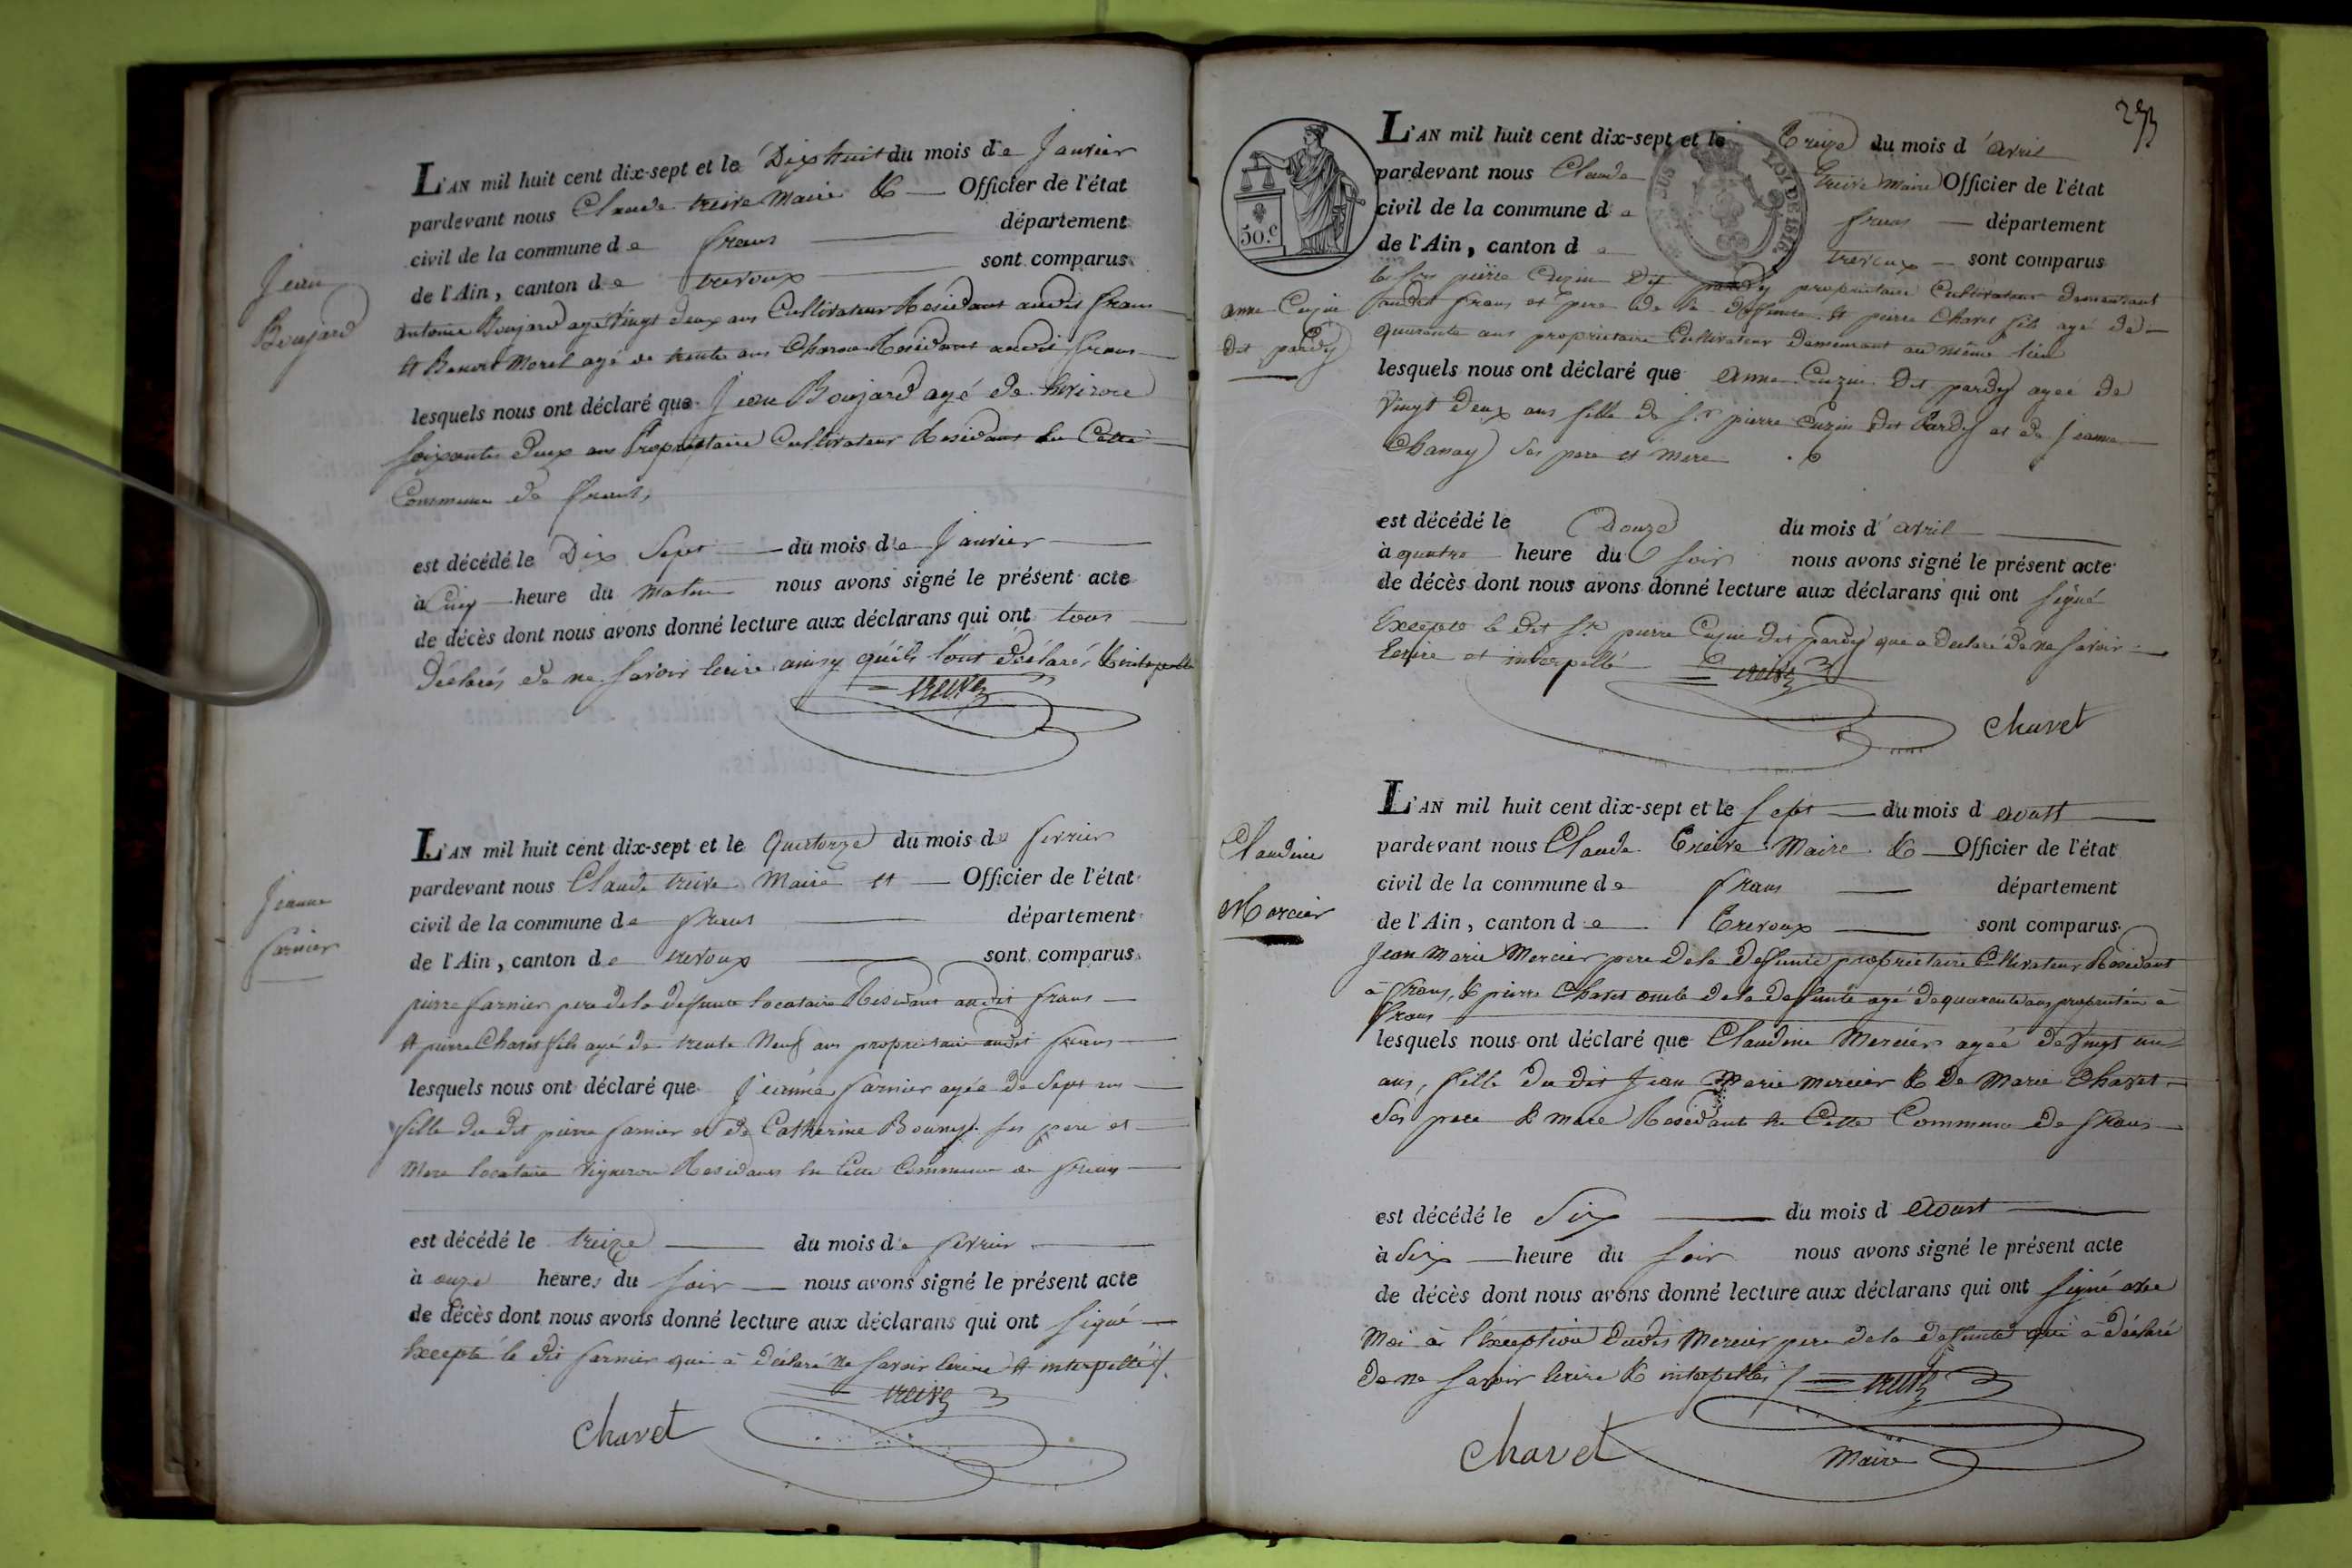 L'AN mil huit cent dix-sept et le Dix huit du mois de Janvier
pardevant nous Claude treive Maire & Officier de l'état
civil de la commune de frans département
de l'Ain, canton de trevoux sont comparus
Jean
Boujard
antoine Boujard agé Vingt deux ans Cultivateur Residant audit frans
et Benoit Morel agé de trente ans Charon Residant audit frans
lesquels nous ont déclaré que Jean Boujard agé de hviron
soixantes deux ans Propriétaire Cultivateur Residant en Cette
Commune de frans,
est décédé le Dix Sept du mois de Janvier
à Cinq heure du Matin nous avons signé le présent acte
de décès dont nous avons donné lecture aux déclarans qui ont tous
Déclarés de ne savoir Ecrire ainsy qu'ils l'ont déclarés &
treive
L'AN mil huit cent dix-sept et le Quatorze du mois de fevrier
pardevant nous Claude treive Maire et Officier de l'état
civil de la commune de frans département
de l'Ain, canton de trevoux sont comparus
Jeanne
farnier
pierre farnier pere de la defunte locataire Residant audit frans
et pierre Chavet fils agé de trente Neuf ans proprietaire audit frans
lesquels nous ont déclaré que Jeanne farnier agée de Sept ans
fille du dit pierre farnier et de Catherine ses pere et
Mere locataire Vigneron Residants en Cette Commune de frans
est décédé le treize du mois de fevrier
à onze heures du soir nous avons signé le présent acte
de décès dont nous avons donné lecture aux déclarans qui ont signé
Excepté le dit farnier qui à déclaré ne savoir Ecrire et interpellé /.
treive
Chavet
L'AN mil huit cent dix-sept et le Treize du mois d'avril
pardevant nous Claude Treive Maire Officier de l'état
civil de la commune de frans département
de l'Ain, canton de trevoux sont comparus
50.c
LOI DE 1816.
anne Cuzin
dit pardy
le Sr pierre Cuzin Dit pardy propriétaire Cultivateur Demeurant
audit frans et pere de la Defunte et pierre Chavet fils agé de
quarante ans proprietaire Cultivateur Demeurant au même lieu
lesquels nous ont déclaré que anne Cuzin Dit pardy ageé de
Vingt Deux ans fille de Sr pierre Cuzin Dit Pardy et de Jeanne
Chanay Ses pere et Mere
est décédé le Douze du mois d'avril
à quatre heure du Soir nous avons signé le présent acte
de décès dont nous avons donné lecture aux déclarans qui ont signé
Excepté le dit Sr pierre Cuzin Dit pardy que a déclaré de ne savoir
Ecrire et interpellé
treive
Chavet
L'AN mil huit cent dix-sept et le sept du mois d aoust
pardevant nous Claude Treive Maire & Officier de l'état
civil de la commune de frans département
de l'Ain, canton de Trevoux sont comparus
Claudine
Mercier
Jean Marie Mercier pere dela Defunte proprietaire Cultivateur Residant
à frans, & pierre Chavet oncle dela defunte agé de quarante ans proprietaire à
frans
lesquels nous ont déclaré que Claudine Mercier ageé de Vingt un
ans, fille du dit Jean Marie mercier & De Marie Chavet
Ses pere & mere Residants en Cette Commune de frans
est décédé le Six du mois d Aoust
à Six heure du Soir nous avons signé le présent acte
de décès dont nous avons donné lecture aux déclarans qui ont signé avec
Moi à l'exception dudit Mercier pere dela defunte qui à déclaré
De ne savoir Ecrire & interpellés / treive
Chavet
Maire